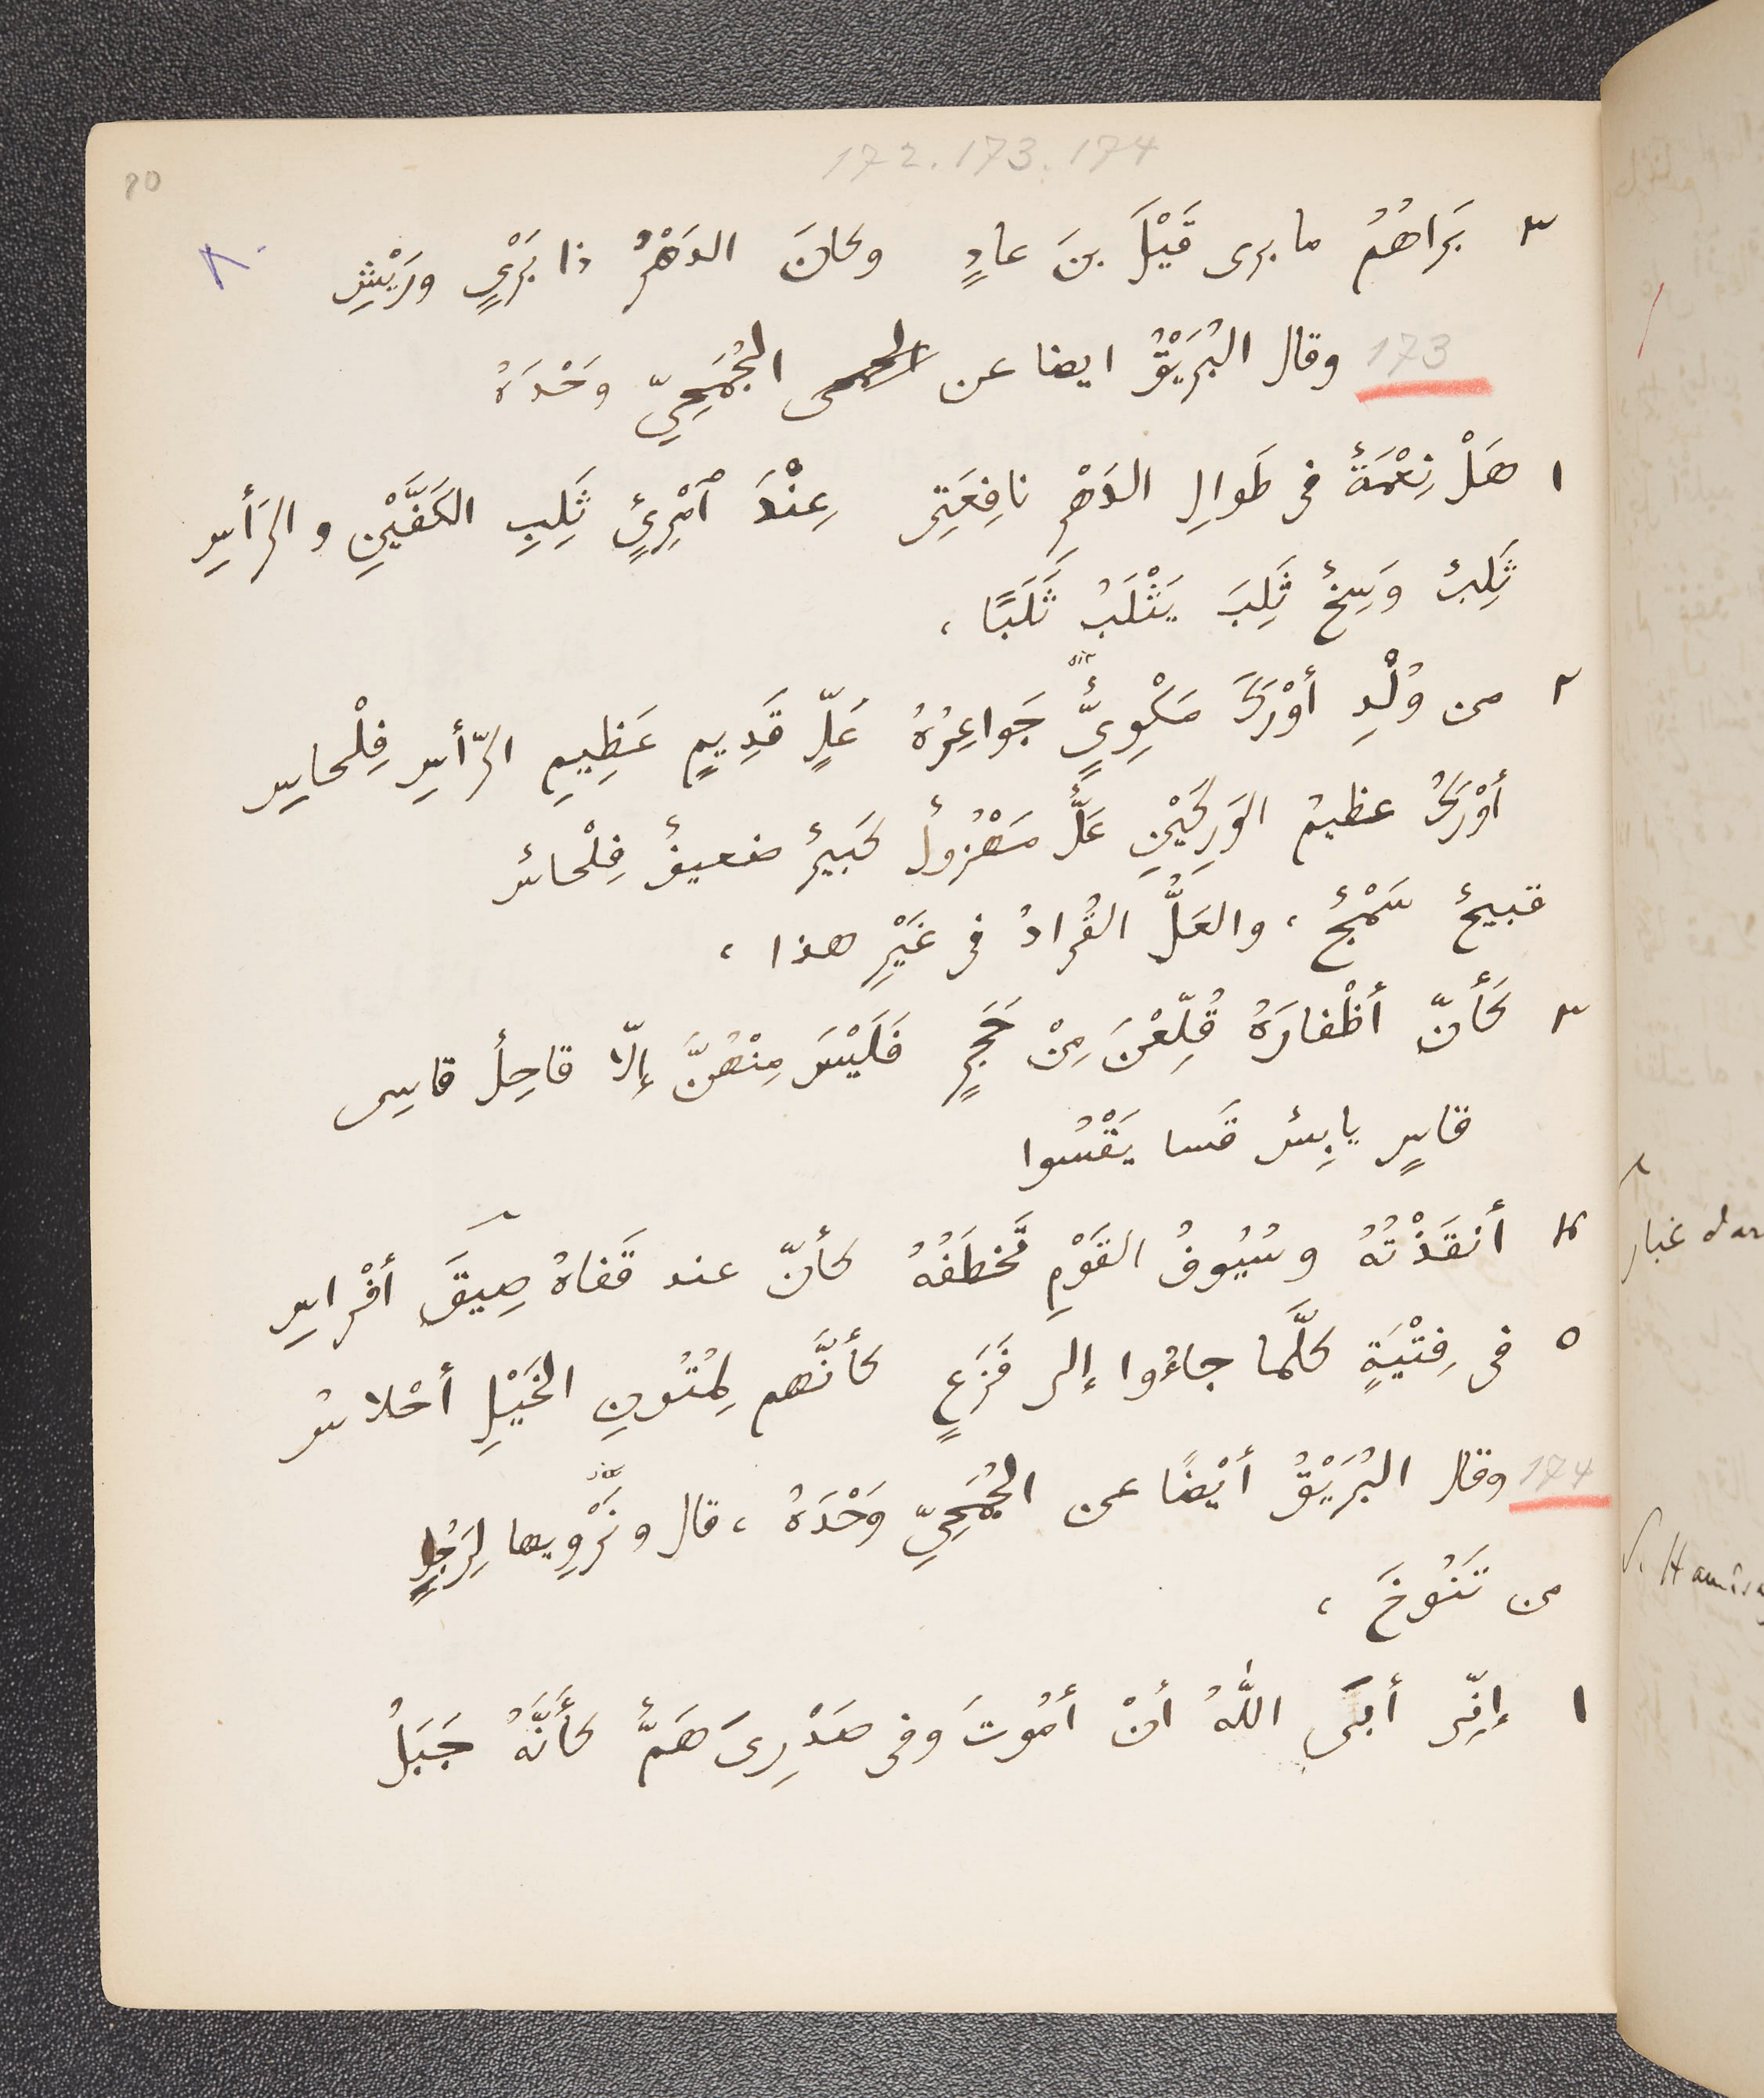 172. 173. 174
80
٨٠
٣ بَرَاهُمُ ما برى قَيْلَ بنَ عادٍ وكانَ الدَهْرُ ذا بَرْىٍ ورَيْشِ
173 وقال البُرَيْقُ ايضا عن الجُمَحِيّ وَحْدَهُ
١ هَلْ نِعْمَةٌ فى طَوالِ الدَهْرِ نافِعَتِى عِنْدَ ٱمْرِئٍ ثَلِبِ الكَفَّيْنِ والرَأسِ
ثَلِبٌ وَسِخٌ ثَلِبَ يَثْلَبُ ثَلَبًا ،
٢ من وُلْدِ أَوْرَكَ مَكْوِىٍّ جَواعِرُهُ عَلٍّ قَدِيمٍ عَظِيمِ الرّأسِ فِلْحاسِ
sic
أَوْرَكُ عظيمُ الوَرِكَيْنِ عَلٌّ مَهْزُولٌ كَبيرٌ ضعيفٌ فِلْحاسٌ
قبيحٌ سَمْجٌ ، والعَلُّ القُرادُ فى غَيْرِ هذا ،
٣ كَأَنّ أظْفارَهُ قُلِّعْنَ مِنْ حَجَرٍ فَلَيْسَ مِنْهُنَّ إلّا قاحِلٌ قاسِى
قاسٍ يابِسٌ قَسا يَقْسُوا
٤ أنقَذْتُهُ وسُيُوفُ القَوْمِ تَخْطَفُهُ كأنّ عند قَفاهُ صِيقَ أفْراسِ
٥ فى فِتْيَةٍ كلَّما جاءُوا إلى فَزَعٍ كأنَّهم لِمُتُونِ الخَيْلِ أحْلاسُ
174 وقال البُرَيْقُ أيْضًا عن الجُمَحِيّ وَحْدَهُ ، قال ونَرْوِيها لِرَجُلٍ
من تَنُوخَ ،
١ إنِّى أبَى اللّهُ أنْ أمُوتَ وَفى صَدْرِىَ هَمٌّ كأَنَّهُ جَبَلُ
غبار